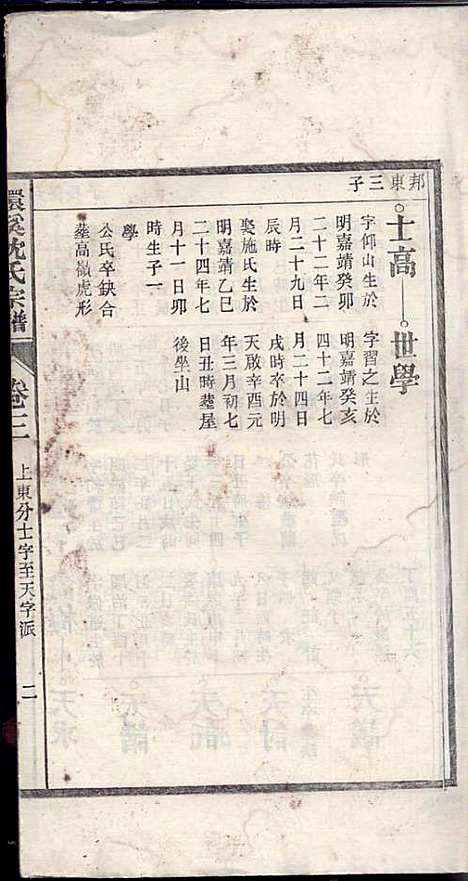 邦東三子
士高
字仰山生於
明嘉靖癸卯
二十二年二
月二十九日
辰時
娶施氏生於
明嘉靖乙巳
二十四年七
月十一日卯
時生子一
學
公氏卒缺合
塟高嶺虎形
世學
字習之生於
明嘉靖癸亥
四十二年七
月二十四日
戌時卒於明
天啟辛酉元
年三月初七
日丑時塟屋
後坐山
環溪沈氏宗譜
卷三
上東分士字至天字派
二